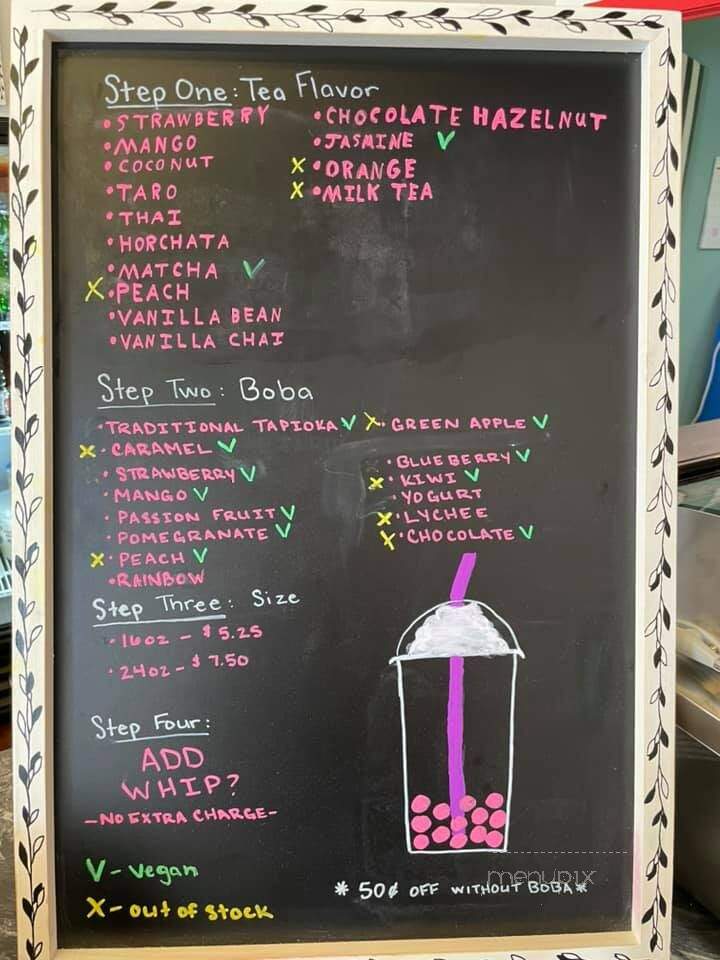 Step One: Tea Flavor
• STRAWBERRY
• MANGO
• COCONUT
• TARO
• THAI
• HORCHATA
• MATCHA V
X • PEACH
• VANILLA BEAN
• VANILLA CHAI
• CHOCOLATE HAZELNUT
• JASMINE V
X • ORANGE
X • MILK TEA
Step Two: Boba
• TRADITIONAL TAPIOKA V
X • CARAMEL V
• STRAWBERRY V
• MANGO V
• PASSION FRUIT V
• POMEGRANATE V
X • PEACH V
• RAINBOW
X • GREEN APPLE V
• BLUEBERRY V
X • KIWI V
• YOGURT
X • LYCHEE
X • CHOCOLATE V
Step Three: Size
• 16oz - $5.25
• 24oz - $7.50
Step Four:
ADD
WHIP?
-NO EXTRA CHARGE-
V - Vegan
X - out of stock
menupix
* 50¢ OFF WITHOUT BOBA *